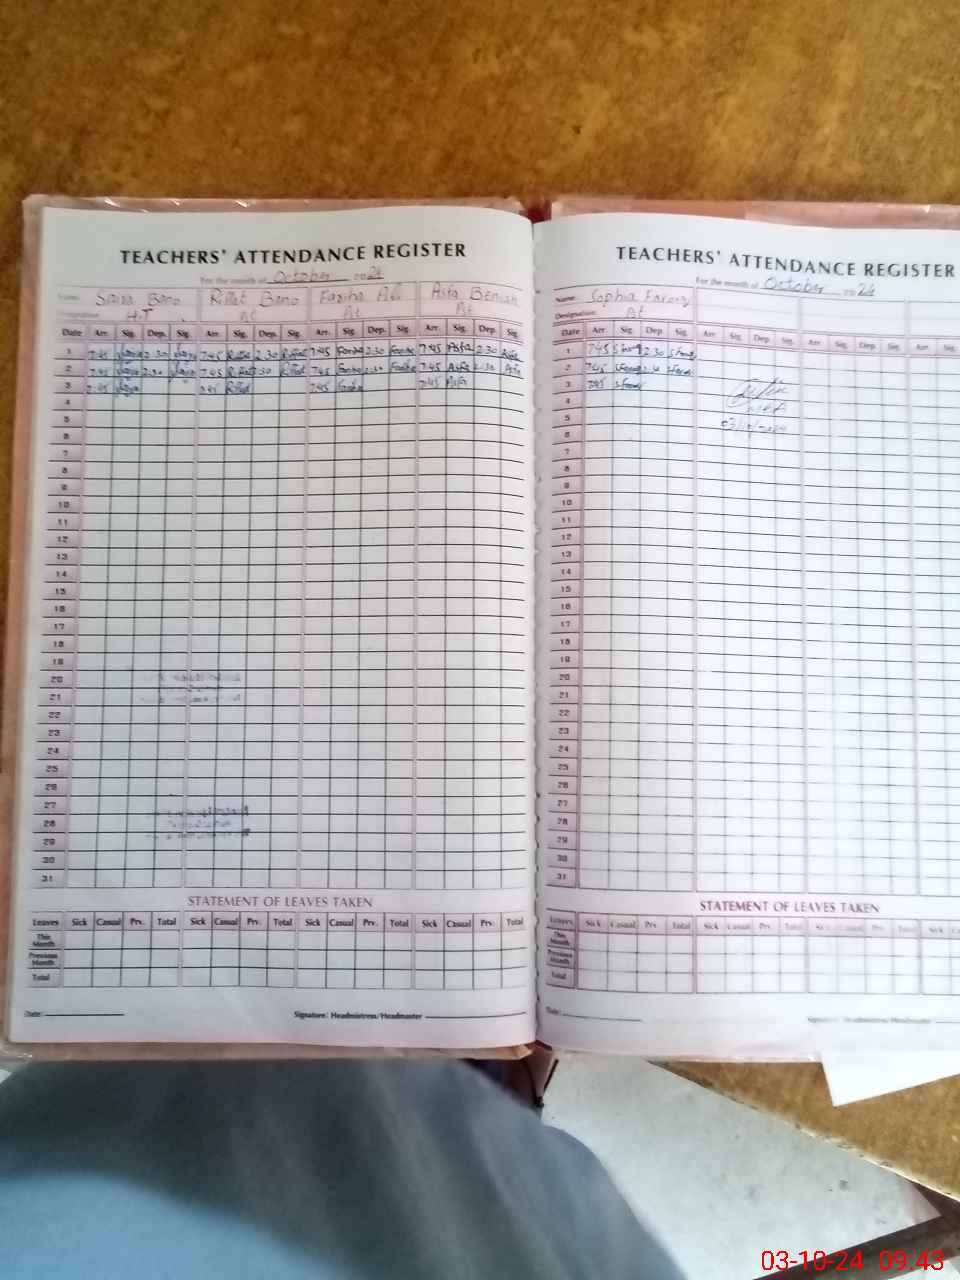 TEACHERS' ATTENDANCE REGISTER
For the month of October 2024
Name: Saira Bano Riffat Bano Fariha Ali Asfa Benish
Designation H.T
Date Arr. Sig. Dep. Sig. Arr. Sig. Dep. Sig. Arr. Sig. Dep. Sig. Arr. Sig. Dep. Sig.
1 7:45 2:30 7:45 Riffat 2:30 Riffat 7:45 Fariha 2:30 Fariha 7:45 Asfa 2:30 Asfa
2 7:45 2:30 7:45 Riffat 2:30 Riffat 7:45 Fariha 2:30 Fariha 7:45 Asfa 2:30 Asfa
3 7:45 7:45 Riffat 7:45 Fariha 7:45 Asfa
4
5
6
7
8
9
10
11
12
13
14
15
16
17
18
19
20
21
22
23
24
25
26
27
28
29
30
31
STATEMENT OF LEAVES TAKEN
Leaves Sick Casual Prv. Total Sick Casual Prv. Total Sick Casual Prv. Total Sick Casual Prv. Total
This Month
Previous Month
Total
Date: Signature: Headmistress/Headmaster
TEACHERS' ATTENDANCE REGISTER
For the month of October 2024
Name: Sophia Farooq
Designation:
Date Arr. Sig. Dep. Sig. Arr. Sig. Dep. Sig. Arr. Sig. Dep. Sig. Arr. Sig.
1 7:45 2:30
2 7:45 2:30
3 7:45
03/10/2024
4
5
6
7
8
9
10
11
12
13
14
15
16
17
18
19
20
21
22
23
24
25
26
27
28
29
30
31
STATEMENT OF LEAVES TAKEN
Leaves Sick Casual Prv. Total Sick Casual Prv. Total Sick Casual Prv. Total Sick
This Month
Previous Month
Total
Date: Signature: Headmistress/Headmaster
03-10-24 09:43